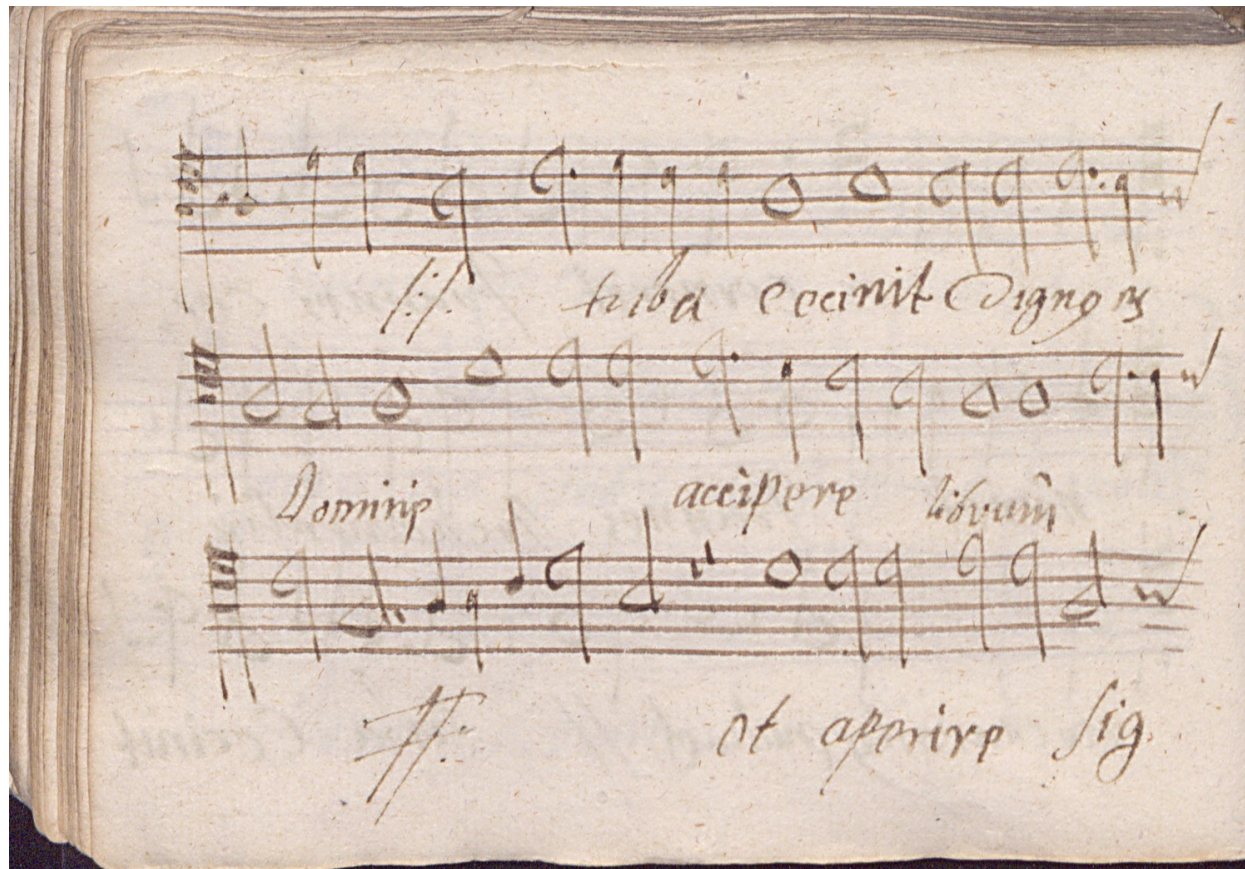 tuba cecinit Dignus es
Domine accipere librum̃
et aperire sig